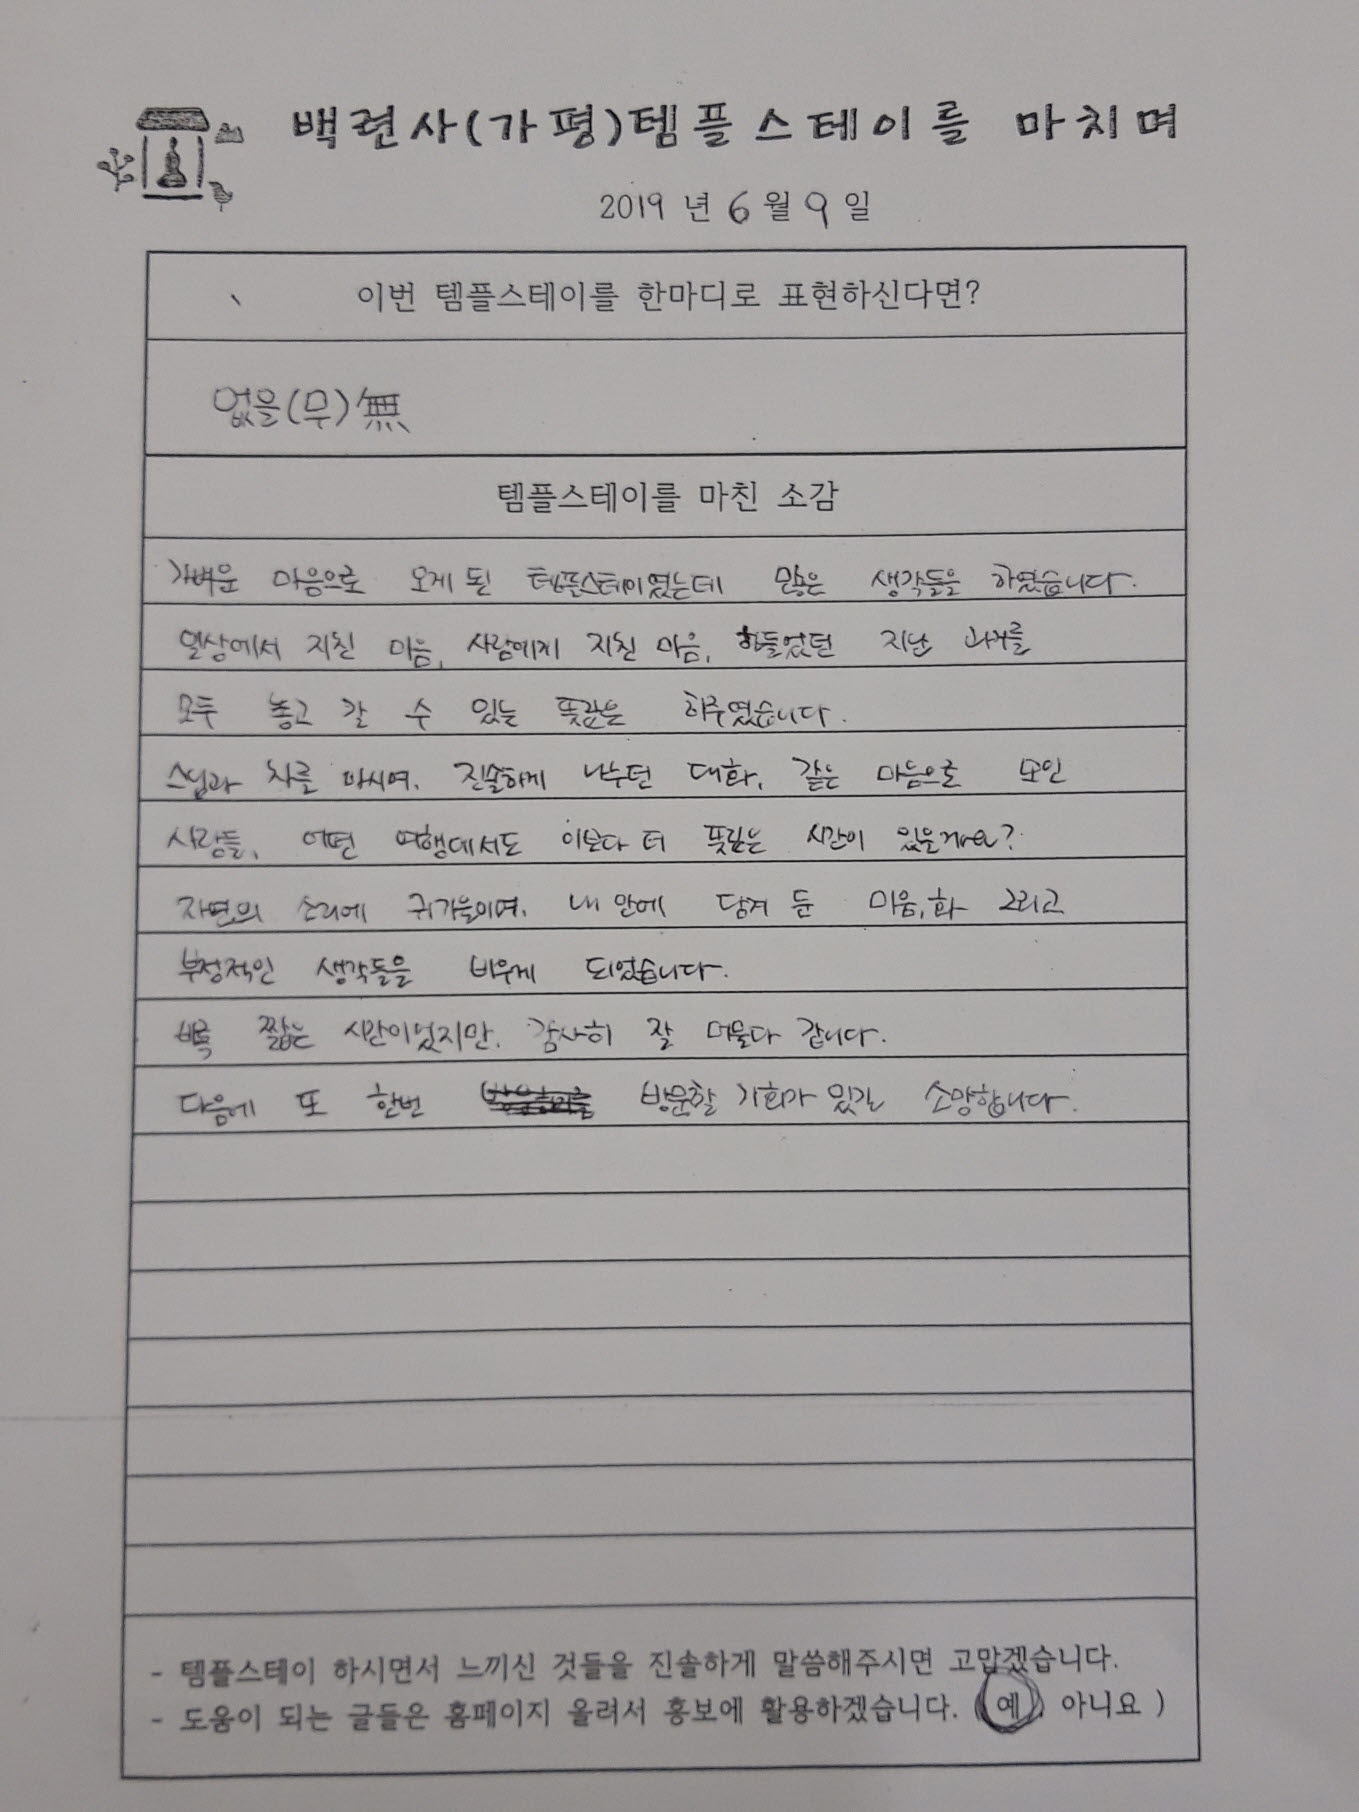 백련사(가평)템플스테이를 마치며
2019 년 6 월 9 일
이번 템플스테이를 한마디로 표현하신다면?
없을(무) 無
템플스테이를 마친 소감
가벼운 마음으로 오게 된 템플스테이였는데 많은 생각들을 하였습니다.
일상에서 지친 마음, 사람에게 지친 마음, 힘들었던 지난 과거를
모두 놓고 갈 수 있는 뜻깊은 하루였습니다.
스님과 차를 마시며, 진솔하게 나누던 대화, 같은 마음으로 모인
사람들, 어떤 여행에서도 이보다 더 뜻깊은 시간이 있을까요?
자연의 소리에 귀기울이며, 내 안에 담겨 둔 미움, 화 그리고
부정적인 생각들을 비우게 되었습니다.
비록 짧은 시간이었지만, 감사히 잘 머물다 갑니다.
다음에 또 한번 방문할 기회가 있길 소망합니다.
- 템플스테이 하시면서 느끼신 것들을 진솔하게 말씀해주시면 고맙겠습니다.
- 도움이 되는 글들은 홈페이지 올려서 홍보에 활용하겠습니다. ( 예 아니요 )